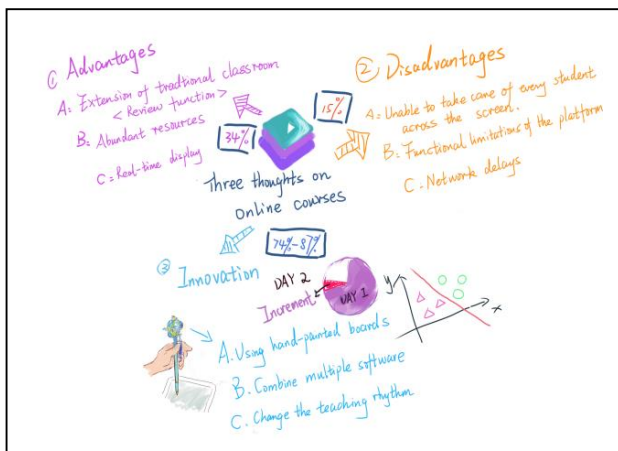 ① Advantages
A: Extension of traditional classroom
< Review function >
B: Abundant resources
C: Real-time display
34%
15%
② Disadvantages
A: Unable to take care of every student
across the screen.
B: Functional limitations of the platform
C. Network delays
Three thoughts on
online courses
74%-87%
③ Innovation
DAY 2
Increment
DAY 1
y
x
A. Using hand-painted boards
B. Combine multiple software
C. Change the teaching rhythm